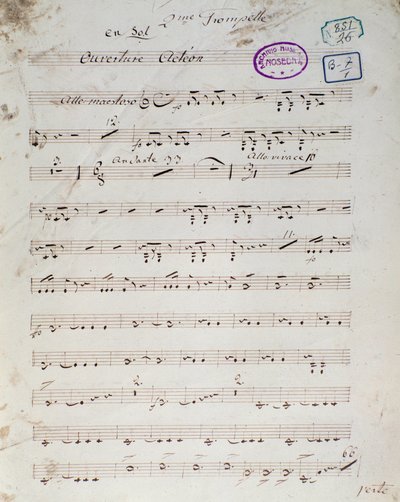 2me Trompette
en Sol
851
26
Ouverture Actéon
ARCHIVO MUSICAL
NOSEDA
B-7
1
Allo maestoso
12
Andante 33
Allo vivace 16
11
2
2
66